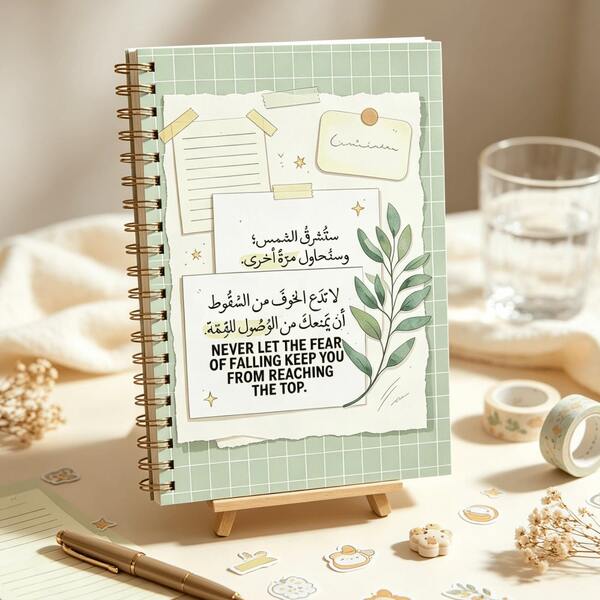 ستُشرقُ الشمس؛
وسنُحاول مرّةً أخرى.
لا تَدَع الخوفَ من السُقُوط
أن يَمنعكَ من الوُصُول للقِمّة
NEVER LET THE FEAR
OF FALLING KEEP YOU
FROM REACHING
THE TOP.